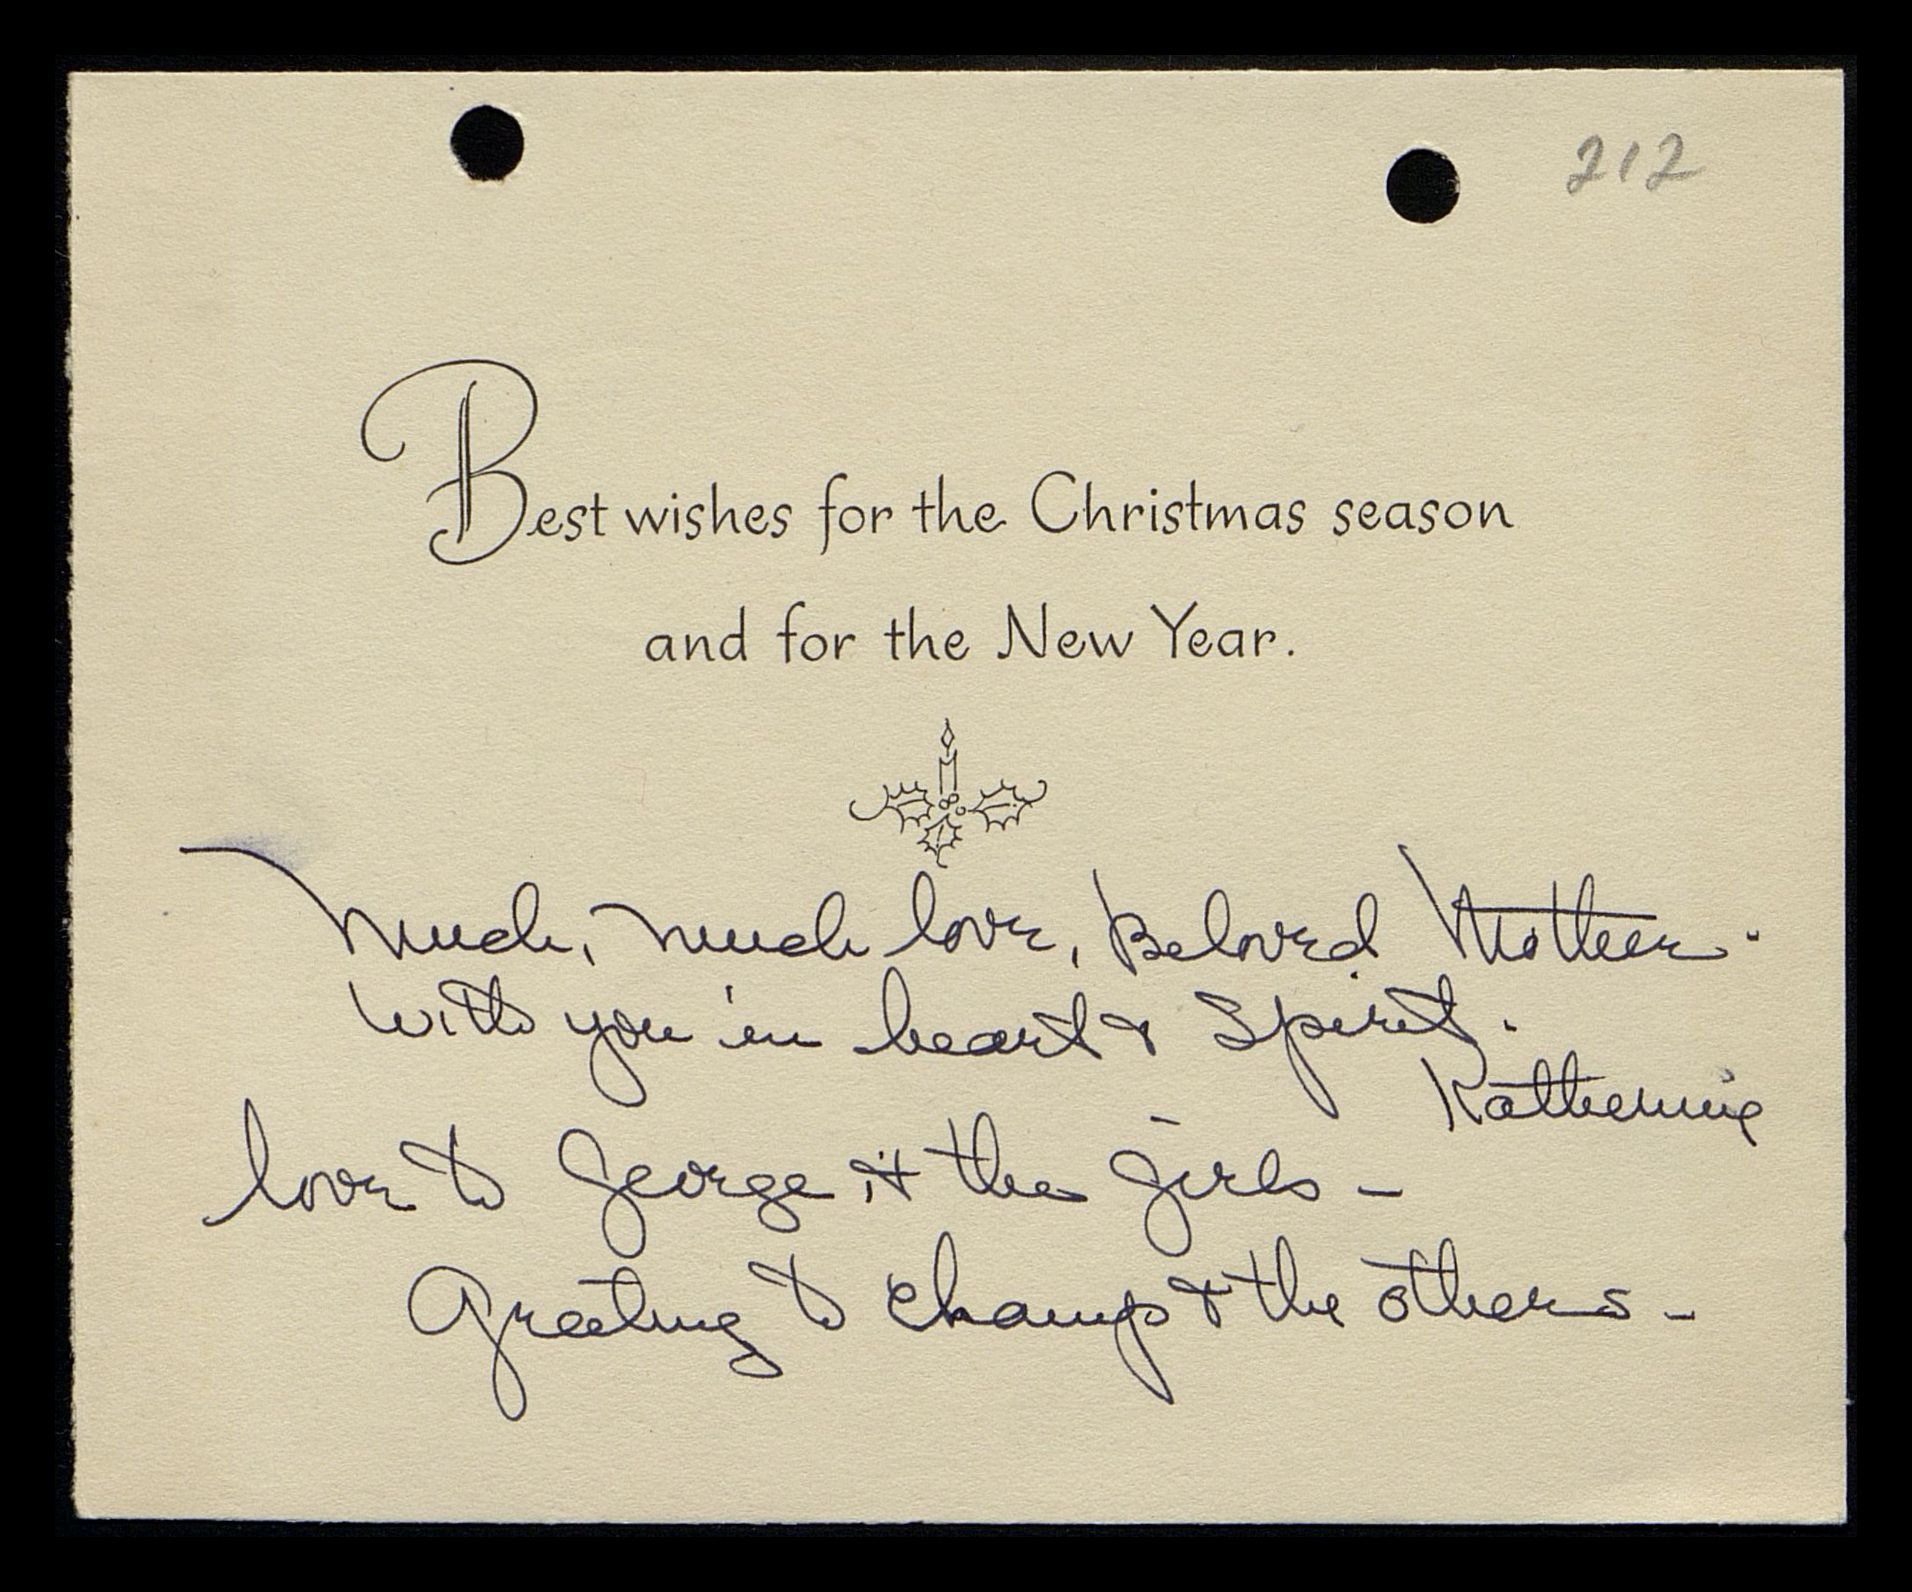 212
Best wishes for the Christmas season
and for the New Year.
Much, much love, Beloved Mother.
With you in heart & Spirit.
Katherine
love to George & the girls -
Greeting to Champ & the others -